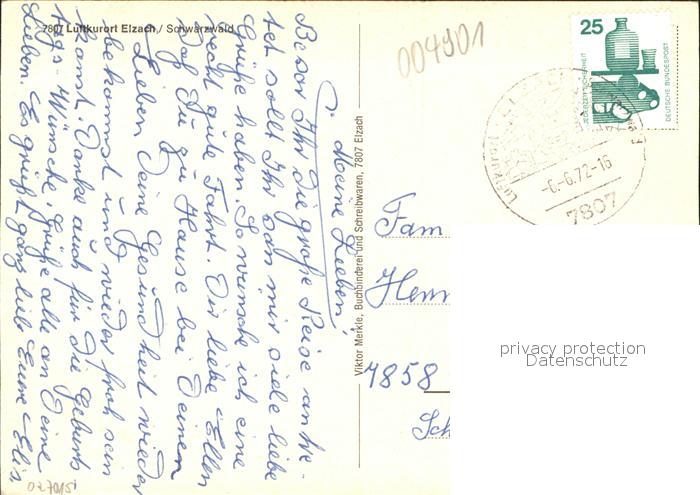 7807 Luftkurort Elzach / Schwarzwald
Meine Lieben!
Bevor Ihr die große Reise antre-
tet sollt Ihr von mir viele liebe
Grüße haben. So wünsche ich eine
recht gute Fahrt. Dir liebe Ellen
daß Du zu Hause bei Deinem
Lieben Deine Gesundheit wieder
bekommst und wieder froh sein
kannst. Danke auch für die Geburts
tags-Wünsche. Grüße alle an Deine
Lieben. Es grüßt ganz lieb Eure Elis
Viktor Merkle, Buchbinderei und Schreibwaren, 7807 Elzach
004901
25
JEDERZEIT SICHERHEIT
DEUTSCHE BUNDESPOST
Luftkurort
-6.-6.72-16
7807
Fam
7858
Sch
privacy protection
Datenschutz
027015